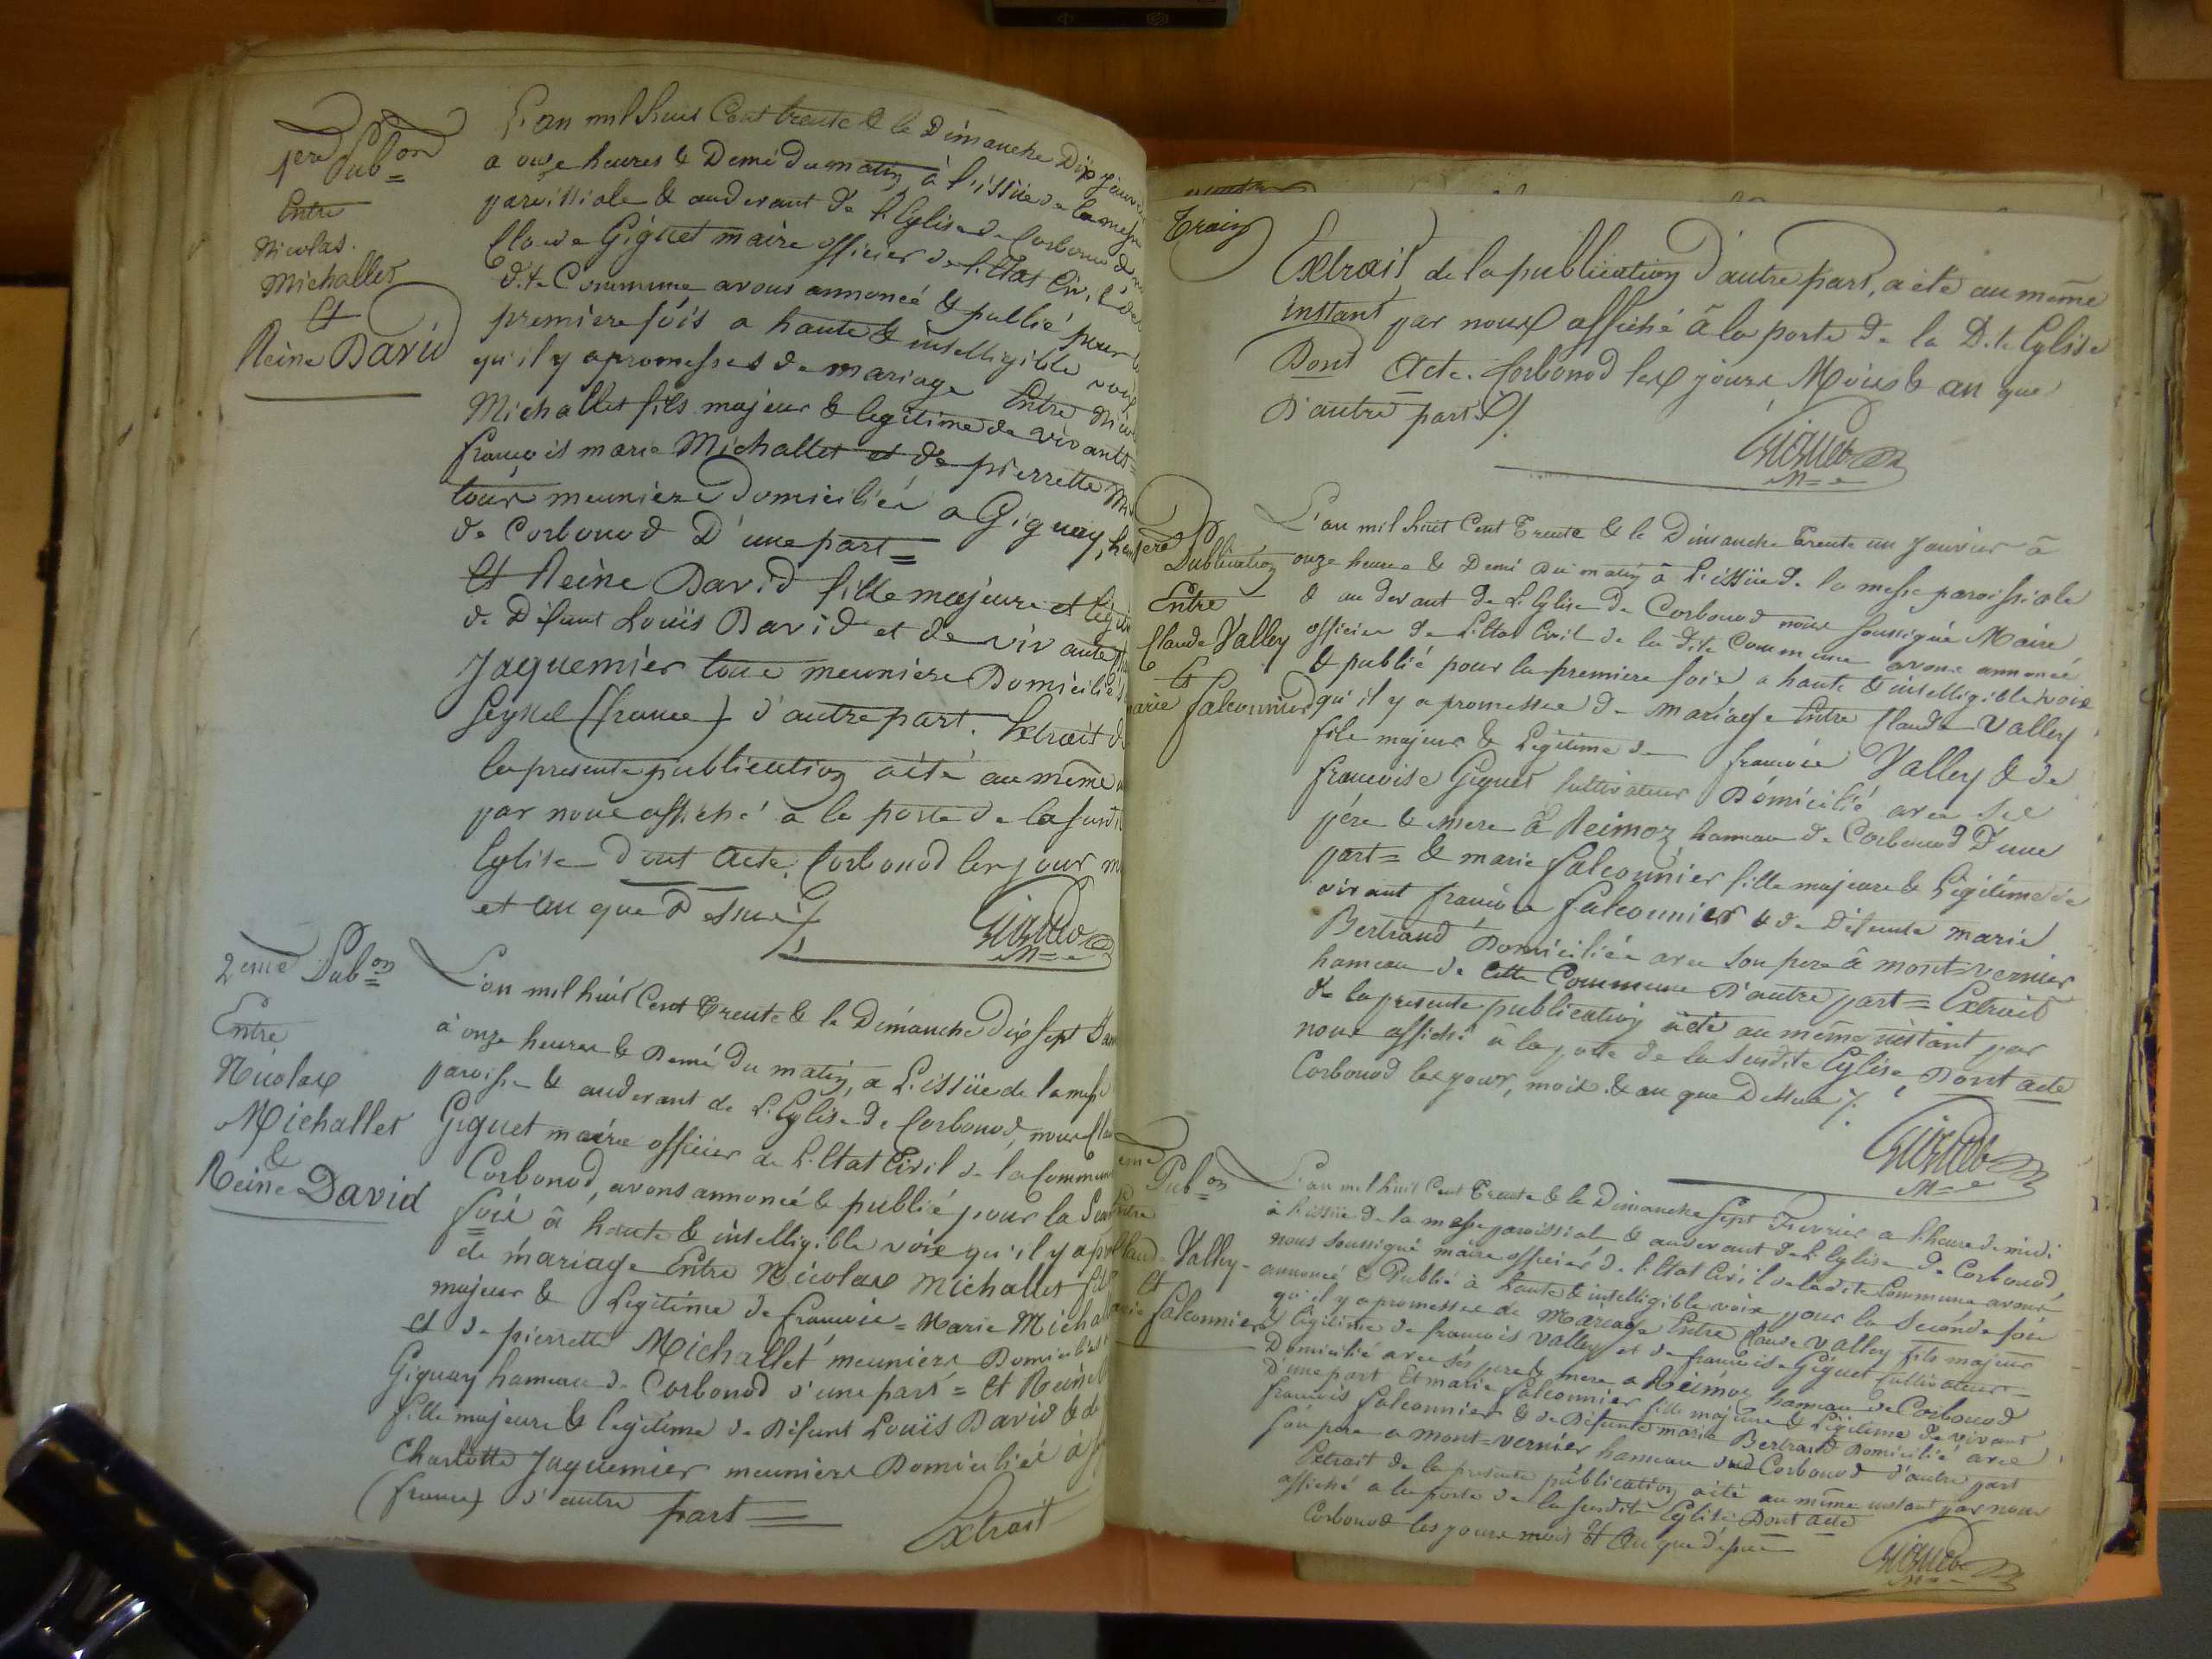 1ere Pub=on
Entre
Nicolas
Michallet
Et
Reine David
L'an mil huit Cent trente & le Dimanche Dix Janvier
a onze heures & Demi du matin, à l'issüe de la messe
paroissiale & au devant de l'Eglise de Corbonod
Claude Giguet maire officier de l'Etat Civil de la
d.te Commune avons annoncé & publié pour la
premiere fois a haute & intelligible voix
qu'il y a promesses de mariage Entre
Michallet fils majeur & legitime de vivants=
françois marie Michallet et de pierrette
tous meuniers Domiciliés a Giguay,
de Corbonod D'une part=
Et Reine David fille majeure et
de Défunt Louïs David et de vivante
Jaquemier tous meuniers Domiciliés
Seyssel (france) d'autre part. Extrait de
la presente publication a été au même
par nous affiché a la porte de la susdite
Eglise Dont Acte, Corbonod les jour
et an que Dessus ./.
Giguet
M=e
2eme Pub=on
Entre
Nicolas
Michallet
&
Reine David
L'an mil huit Cent Trente & le Dimanche dix sept
à onze heures & Demi du matin, a l'issüe de la messe
paroisse & au devant de l'Eglise de Corbonod, nous
Giguet maire officier de l'Etat Civil de la Commune
Corbonod, avons annoncé & publié pour la
fois à haute & intelligible voix qu'il y a
de mariage Entre Nicolas Michallet
majeur & Legitime de françois=Marie
et de pierrette Michallet meuniers Domiciliés
Giguay hameau de Corbonod d'une part= Et Reine
fille majeure & legitime de Défunt Louïs David & de
Charlotte Jaquemier meuniers Domiciliés à
(france) d'autre part=
Extrait
Extrait de la publication d'autre part, a été au même
instant par nous affiché à la porte de la D.te Eglise
Dont Acte. Corbonod les jours Mois & an que
D'autre part ./.
Giguet
M=e
Publication
Entre
Claude Valley
Et
marie falconnier
L'an mil huit Cent Trente & le Dimanche trente un Janvier à
onze heures & Demi Du matin à l'issüe de la messe paroissiale
& au devant de l'Eglise de Corbonod nous soussigné Maire
officier de l'Etat Civil de la d.te Commune avons annoncé
& publié pour la premiere fois a haute & intelligible voix
qu'il y a promesses de mariage Entre Claude Valley
fils majeur & Legitime de françois Valley & de
françoise Giguet Cultivateur Domicilié avec ses
père & mere à Reimoz hameau de Corbonod D'une
part= & marie falconnier fille majeure & Légitime de
vivant françois falconnier & de Défunte marie
Bertrand Domiciliée avec son pere à mont=vernier
hameau de cette Commune D'autre part= Extrait
de la presente publication a été au même instant par
nous affiché à la porte de la susdite Eglise, Dont acte
Corbonod les jour, mois & an que Dessus ./.
Giguet
M=e
Pub=on
Entre
Valley
Et
falconnier
L'an mil huit Cent Trente & le Dimanche Sept Fevrier a l'heure de midi
à l'issüe de la messe paroissiale & au devant de l'Eglise de Corbonod,
nous soussigné maire officier de l'Etat Civil de ladite Commune avons
annoncé & Publié à haute & intelligible voix pour la seconde fois
qu'il y a promesses de Mariage Entre Claude Valley fils majeur
& légitime de françois Valley et de françoise Giguet Cultivateur
Domicilié avec ses pere & mere a Reimoz hameau de Corbonod
D'une part Et marie falconnier fille majeure & Légitime de vivant
françois falconnier & de Défunte marie Bertrand Domicilié avec
son pere a mont=vernier hameau dud Corbonod d'autre part
Extrait de la presente publication a été au même instant par nous
affiché a la porte de la susdite Eglise Dont acte
Corbonod les jours mois Et An que dessus
Giguet
M=e